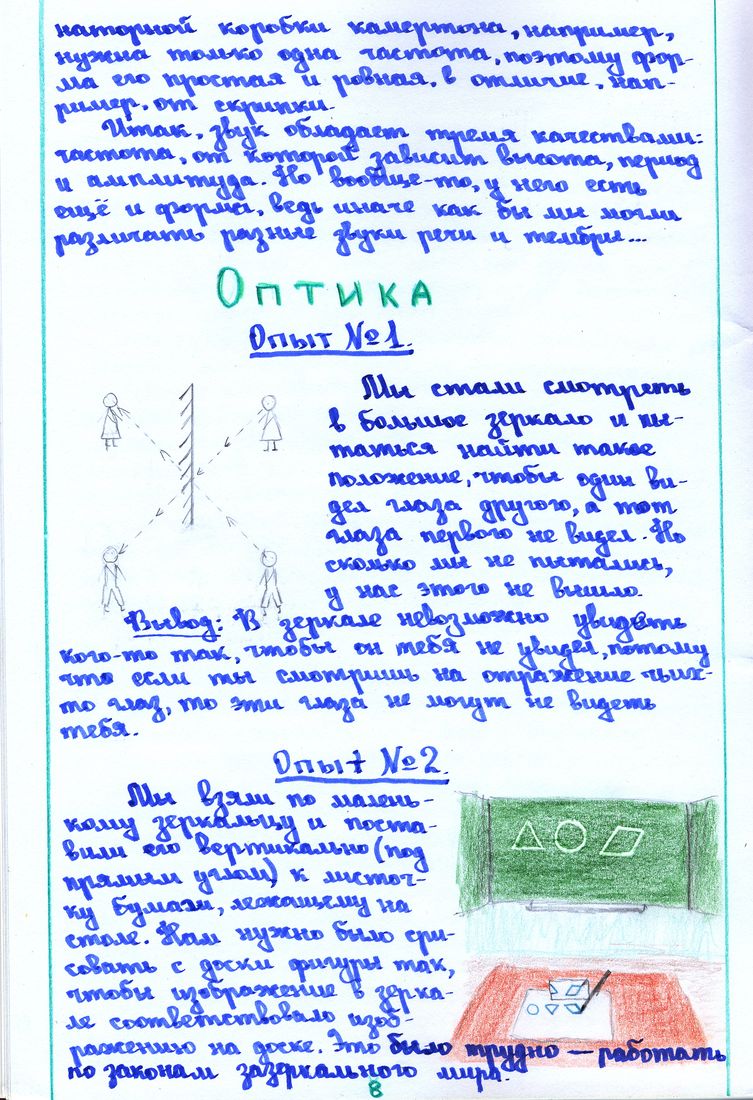 наторной коробки камертона, например,
нужна только одна частота, поэтому фор-
ма его простая и ровная, в отличие, нап-
ример, от скрипки.
Итак, звук обладает тремя качествами:
частота, от которой зависит высота, период
и амплитуда. Но вообще-то, у него есть
ещё и форма, ведь иначе как бы мы могли
различать разные звуки речи и тембры...
Оптика
Опыт №1.
Мы стали смотреть
в большое зеркало и пы-
таться найти такое
положение, чтобы один ви-
дел глаза другого, а тот
глаза первого не видел. Но
сколько мы не пытались,
у нас этого не вышло.
Вывод: В зеркале невозможно увидеть
кого-то так, чтобы он тебя не увидел, потому
что если ты смотришь на отражение чьих-
то глаз, то эти глаза не могут не видеть
тебя.
Опыт №2.
Мы взяли по малень-
кому зеркальцу и поста-
вили его вертикально (под
прямым углом) к листоч-
ку бумаги, лежащему на
столе. Нам нужно было сри-
совать с доски фигуры так,
чтобы изображение в зерка-
ле соответствовало изоб-
ражению на доске. Это было трудно — работать
по законам зазеркального мира.
8